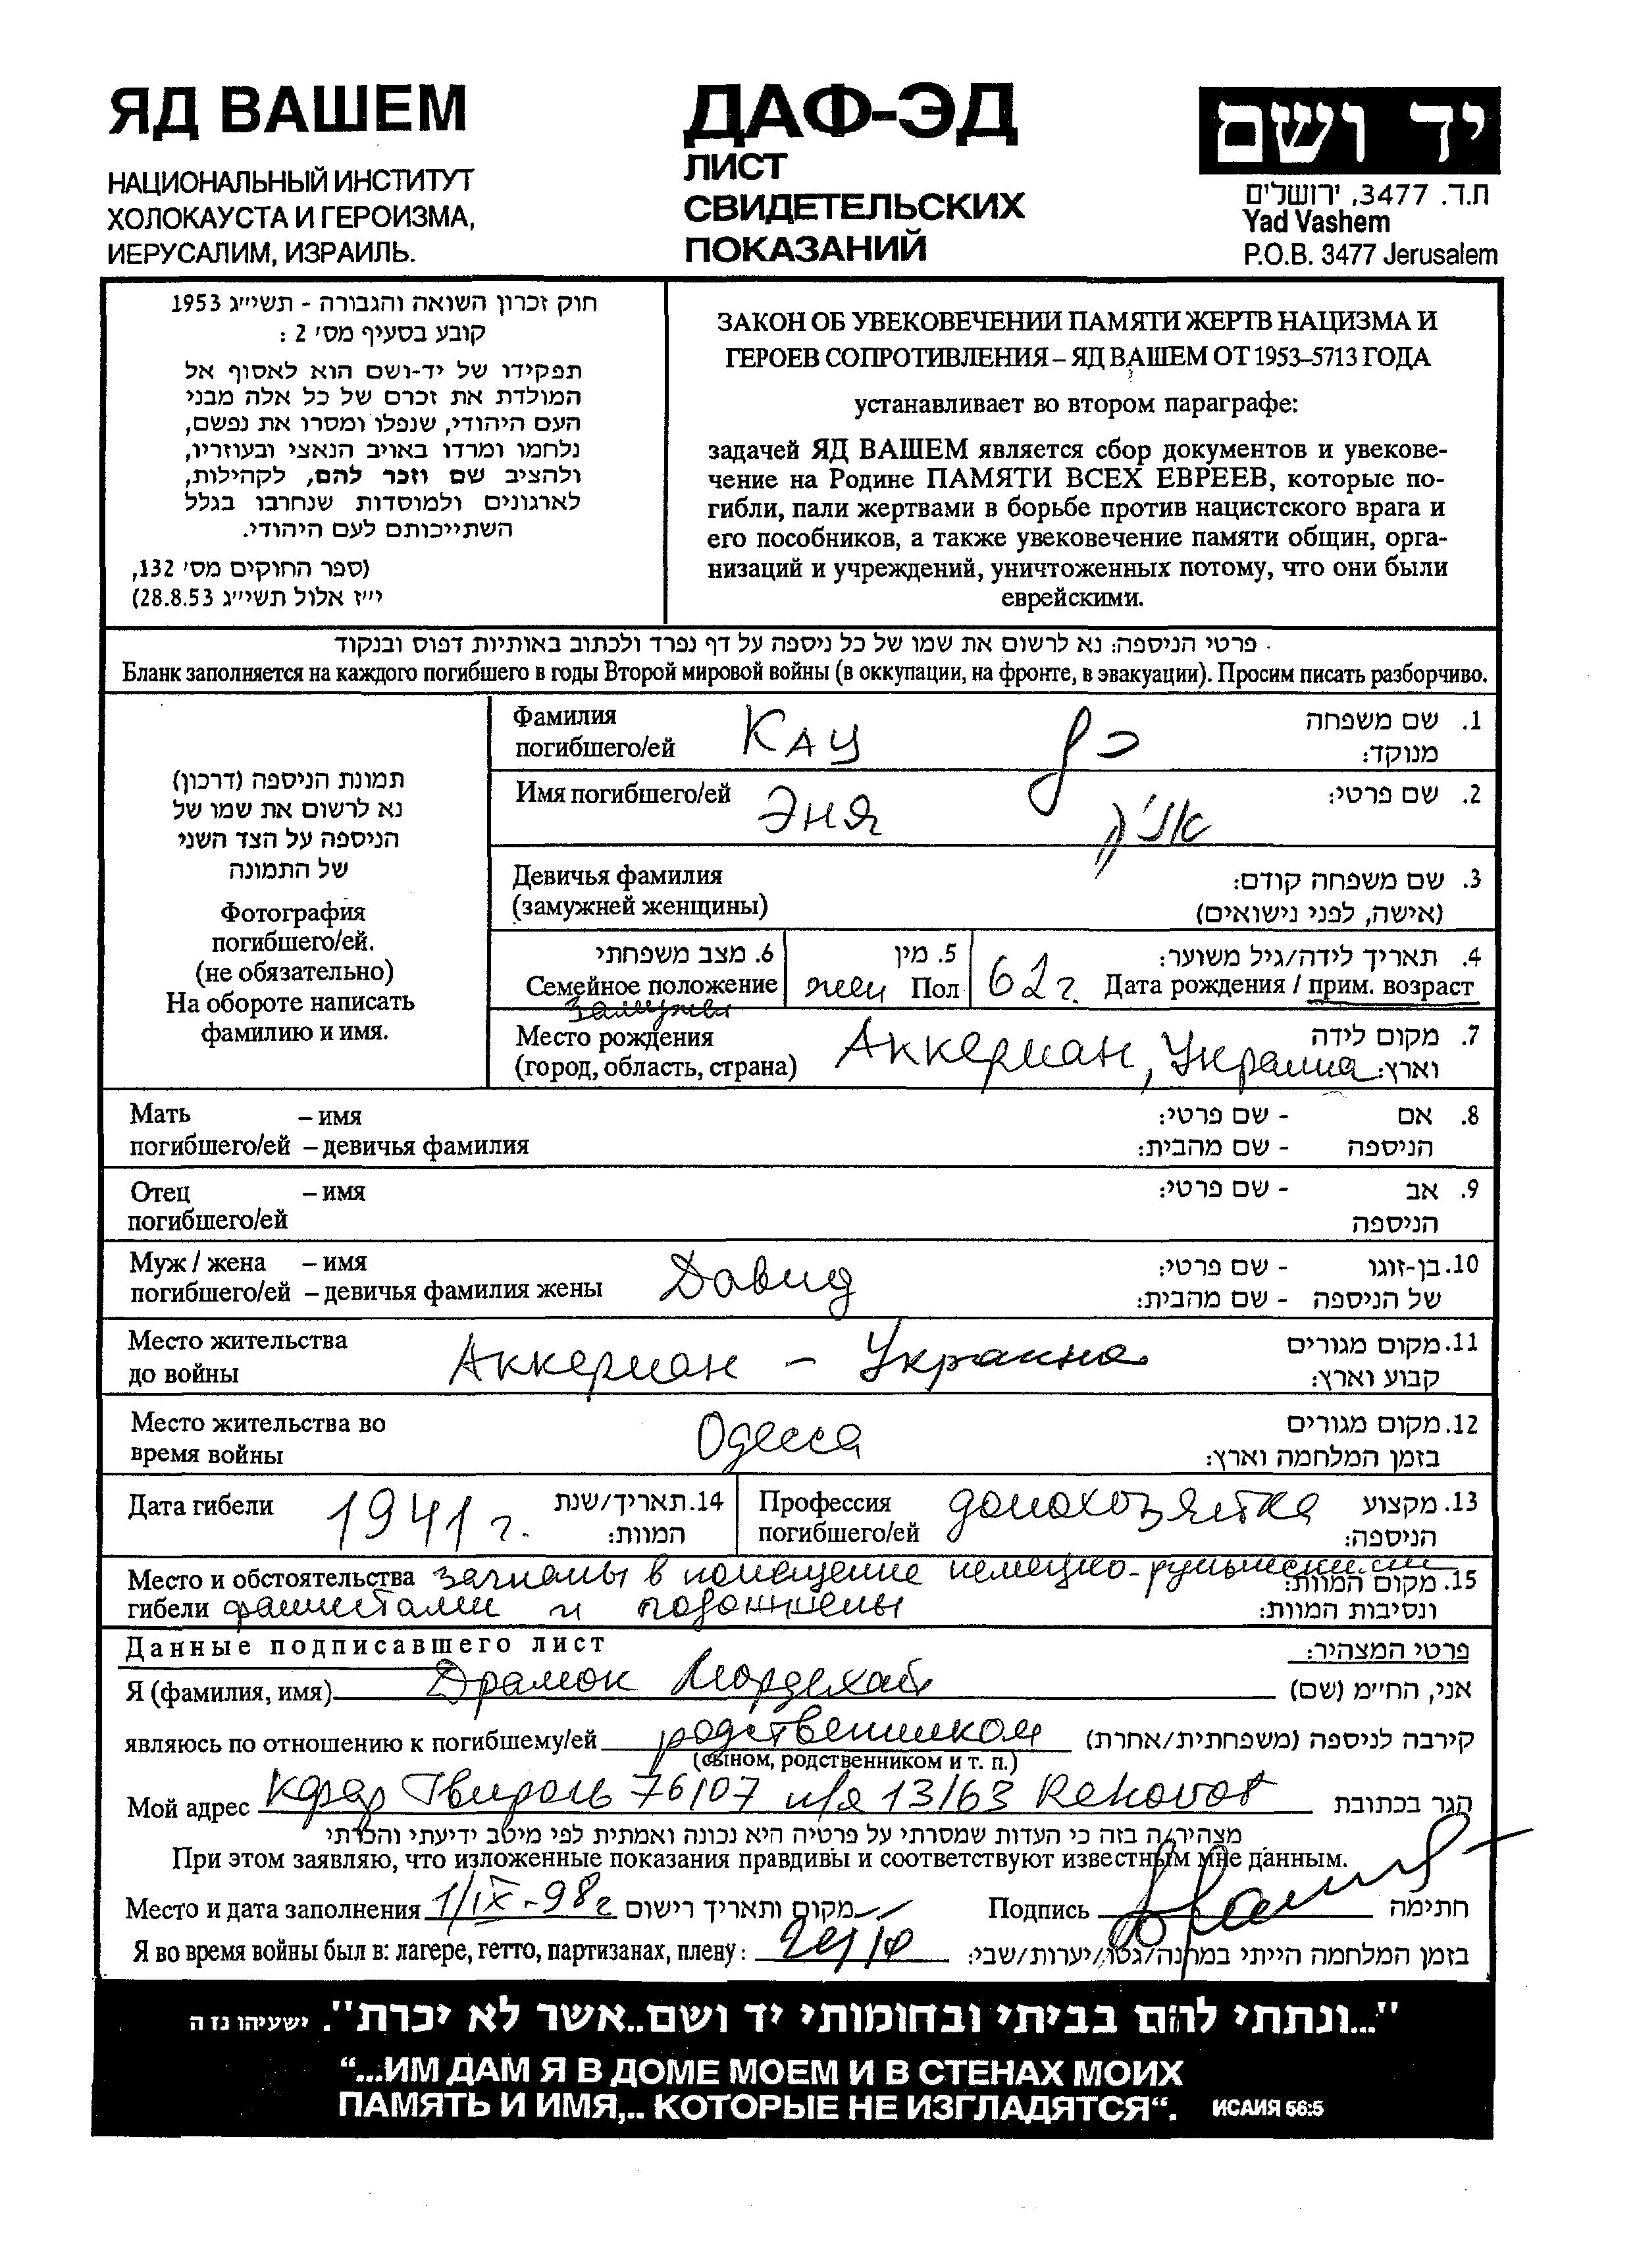 ЯД ВАШЕМ
НАЦИОНАЛЬНЫЙ ИНСТИТУТ
ХОЛОКАУСТА И ГЕРОИЗМА,
ИЕРУСАЛИМ, ИЗРАИЛЬ.
ДАФ-ЭД
ЛИСТ
СВИДЕТЕЛЬСКИХ
ПОКАЗАНИЙ
יד ושם
ת.ד. 3477, ירושלים
Yad Vashem
P.O.B. 3477 Jerusalem
חוק זכרון השואה והגבורה - תשי״ג 1953
קובע בסעיף מס׳ 2 :
תפקידו של יד-ושם הוא לאסוף אל
המולדת את זכרם של כל אלה מבני
העם היהודי, שנפלו ומסרו את נפשם,
נלחמו ומרדו באויב הנאצי ובעוזריו,
ולהציב שם וזכר להם, לקהילות,
לארגונים ולמוסדות שנחרבו בגלל
השתייכותם לעם היהודי.
(ספר החוקים מס׳ 132,
י״ז אלול תשי״ג 28.8.53)
ЗАКОН ОБ УВЕКОВЕЧЕНИИ ПАМЯТИ ЖЕРТВ НАЦИЗМА И
ГЕРОЕВ СОПРОТИВЛЕНИЯ – ЯД ВАШЕМ ОТ 1953–5713 ГОДА
устанавливает во втором параграфе:
задачей ЯД ВАШЕМ является сбор документов и увекове-
чение на Родине ПАМЯТИ ВСЕХ ЕВРЕЕВ, которые по-
гибли, пали жертвами в борьбе против нацистского врага и
его пособников, а также увековечение памяти общин, орга-
низаций и учреждений, уничтоженных потому, что они были
еврейскими.
פרטי הניספה: נא לרשום את שמו של כל ניספה על דף נפרד ולכתוב באותיות דפוס ובנקוד
Бланк заполняется на каждого погибшего в годы Второй мировой войны (в оккупации, на фронте, в эвакуации). Просим писать разборчиво.
תמונת הניספה (דרכון)
נא לרשום את שמו של
הניספה על הצד השני
של התמונה
Фотография
погибшего/ей.
(не обязательно)
На обороте написать
фамилию и имя.
Фамилия 1. שם משפחה
погибшего/ей Кац כץ מנוקד:
Имя погибшего/ей Эня אניה 2. שם פרטי:
Девичья фамилия 3. שם משפחה קודם:
(замужней женщины) (אישה, לפני נישואים)
6. מצב משפחתי 5. מין 4. תאריך לידה/גיל משוער:
Семейное положение жен Пол 62 г. Дата рождения / прим. возраст
замужем
Место рождения 7. מקום לידה
(город, область, страна) Аккерман, Украина וארץ:
Мать – имя 8. אם - שם פרטי:
погибшего/ей – девичья фамилия הניספה - שם מהבית:
Отец – имя 9. אב - שם פרטי:
погибшего/ей הניספה
Муж / жена – имя Давид 10. בן-זוגו - שם פרטי:
погибшего/ей – девичья фамилия жены של הניספה - שם מהבית:
Место жительства 11. מקום מגורים
до войны Аккерман – Украина קבוע וארץ:
Место жительства во Одесса 12. מקום מגורים
время войны בזמן המלחמה וארץ:
Дата гибели 1941 г. 14. תאריך/שנת המוות:
Профессия погибшего/ей домохозяйка 13. מקצוע הניספה:
Место и обстоятельства загнаны в помещение немецко-румынскими 15. מקום המוות:
гибели фашистами и подожжены ונסיבות המוות:
Данные подписавшего лист פרטי המצהיר:
Я (фамилия, имя) Драмок Мордехай אני, החי״מ (שם)
являюсь по отношению к погибшему/ей родственником קירבה לניספה (משפחתית/אחרת)
(сыном, родственником и т. п.)
Мой адрес Кфар Гвироль 76/07 п/я 13/63 Rehovot הגר בכתובת
מצהיר/ה בזה כי העדות שמסרתי על פרטיה היא נכונה ואמתית לפי מיטב ידיעתי והכרתי
При этом заявляю, что изложенные показания правдивы и соответствуют известным мне данным.
Место и дата заполнения 1/IX-98г מקום ותאריך רישום Подпись חתימה
Я во время войны был в: лагере, гетто, партизанах, плену: בזמן המלחמה הייתי במחנה/גטו/יערות/שבי:
"...ונתתי להם בביתי ובחומותי יד ושם..אשר לא יכרת". ישעיהו נז ה
“...ИМ ДАМ Я В ДОМЕ МОЕМ И В СТЕНАХ МОИХ
ПАМЯТЬ И ИМЯ,.. КОТОРЫЕ НЕ ИЗГЛАДЯТСЯ“. ИСАИЯ 56:5